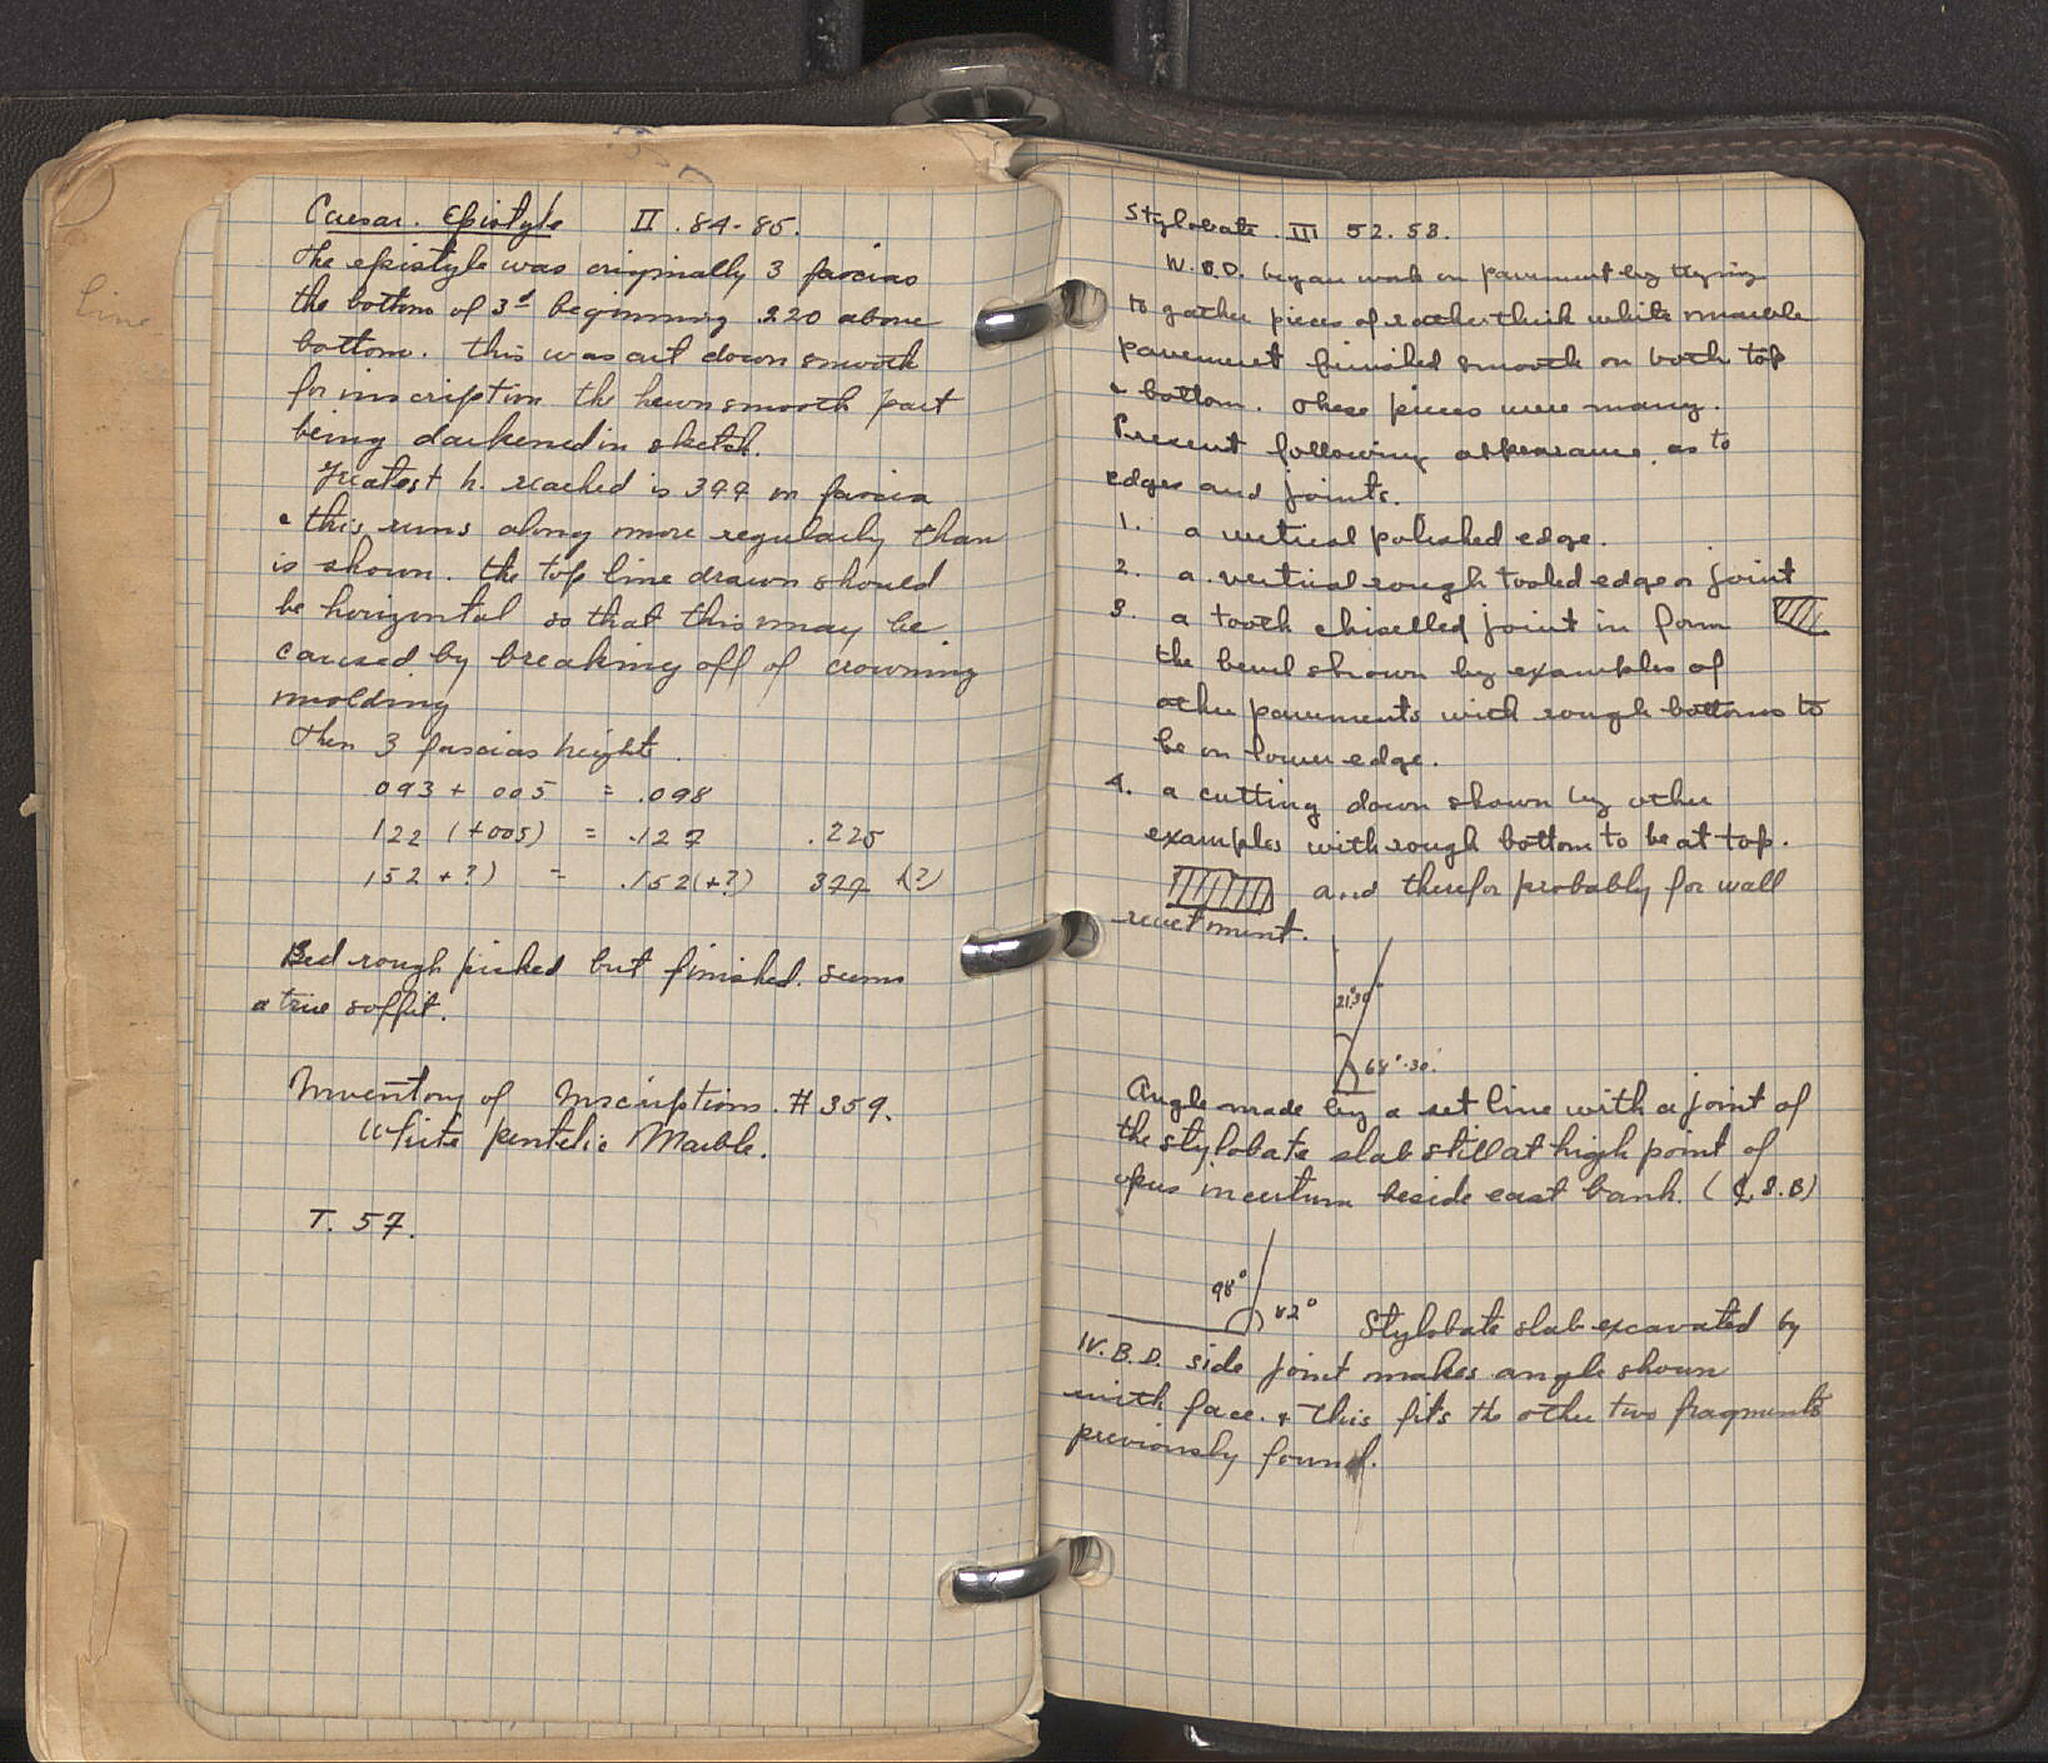 line
Caesar. Epistyle II. 84-85.
The epistyle was originally 3 fascias
the bottom of 3d beginning .220 above
bottom. This was cut down smooth
for inscription the hewn smooth part
being darkened in sketch.
Greatest h. reached is 377 on fascia
& this runs along more regularly than
is shown. The top line drawn should
be horizontal so that this may be
caused by breaking off of crowning
molding
Then 3 fascias height.
093 + 005 = .098
122 (+005) = .127 .225
152 + ?) = .152(+?) 377 (?)
Bed rough picked but finished. seems
a true soffit.
Inventory of Inscriptions. # 359.
White pentelic Marble.
T. 57.
Stylobate. III 52. 53.
W.B.D. began work on pavement by trying
to gather pieces of rather thick white marble
pavement finished smooth on both top
& bottom. These pieces were many.
Present following appearance as to
edges and joints.
1. a vertical polished edge.
2. a vertical rough tooled edge or joint
3. a tooth chiselled joint in form
the bevel shown by examples of
other pavements with rough bottoms to
be on lower edge.
4. a cutting down shown by other
examples with rough bottom to be at top.
and therefor probably for wall
revetment.
21°30'
68°.30'
Angle made by a set line with a joint of
the stylobate slab still at high point of
opus incertum beside east bank. ( S.B)
98°
82°
Stylobate slab excavated by
W.B.D. side joint makes angle shown
with face. & this fits the other two fragments
previously found.